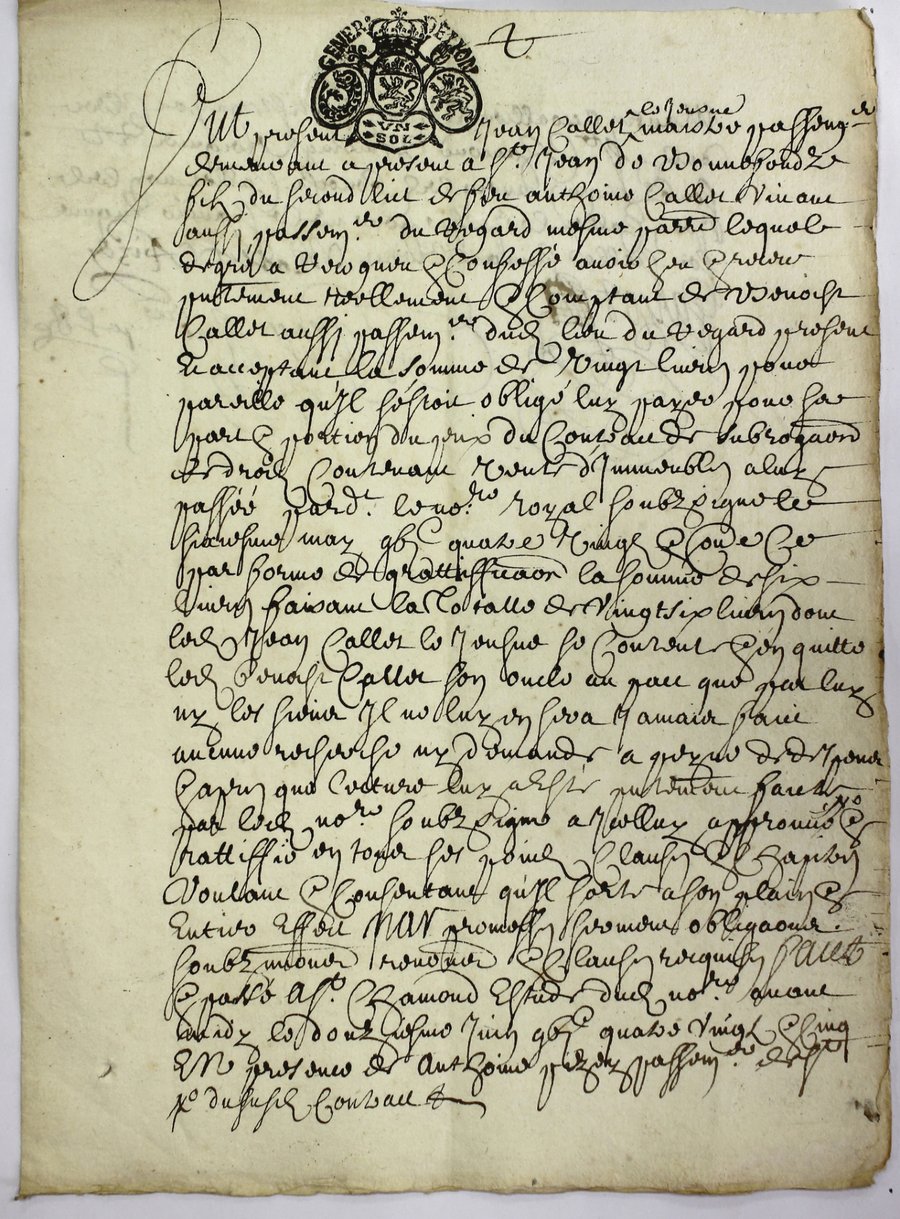 GENER DE LYON
VN
SOL
le Jeusne
Fut present Jean Callet maistre passem.er
demeurant a present a St Jean de Bonnefondz
filz du second lict de feu anthoine Callet vivant
aussy passem.er du Regard mesme parre lequel
de gré a recogneu & Confessé avoir heu & receu
pntement reellement & Comptant de Benoist
Callet aussy passem.er dud. lieu du Regard present
Et acceptant la somme de Vingt livres pour
pareille qu'Il s'estoit obligé luy payer pour sa
part & portion du prix du Contract de subrogaon
de droictz Contenant Vente d'Jmmeubles a luy
passée pard.t le no.re royal soubzsigné le
may gbc quatre Vingt &
par forme de grattifficaon la somme de six
livres faisant la Totalle de Vingt six livres dont
led. Jean Callet le Jeusne se Contente & en quitte
led. Benoist Callet son oncle au pact que par luy
ny les siens Jl ne luy en sera Jamais faict
aucune recherche ny demande a peyne de despens
& apres que lecture luy a esté pntement faicte
par led. no.re soubzsigné a Jcelluy approuvé &
rattiffié en tous ses poinctz Clauses & Chapitres
Voulant & Consentant qu'Il sorte a son plain &
Entier Effect promesses serment obligaons
soubzmions renonons & Clauses requises faict
& passé a St. Chamond Estude dud. no.re avant
midy le douziesme Juin gbc quatre Vingt & cinq
EN presence de Anthoine passem.er de St
dususd. Contract